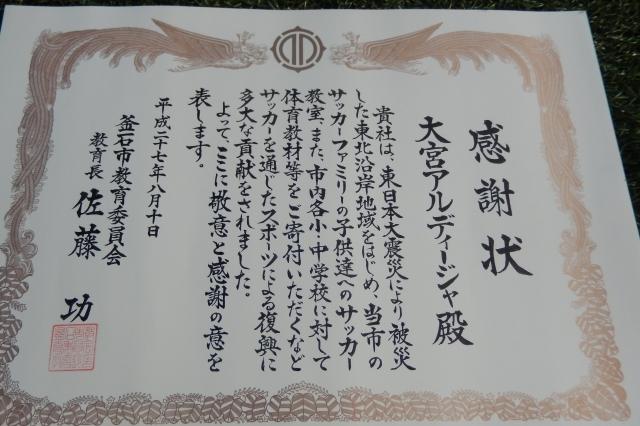 感謝状
大宮アルディージャ殿
貴社は、東日本大震災により被災
した東北沿岸地域をはじめ、当市の
サッカーファミリーの子供達へのサッカー
教室、また、市内各小・中学校に対して
体育教材等をご寄付いただくなど
サッカーを通じたスポーツによる復興に
多大な貢献をされました。
よって、ここに敬意と感謝の意を
表します。
平成二十七年八月十日
釜石市教育委員会
教育長 佐藤 功